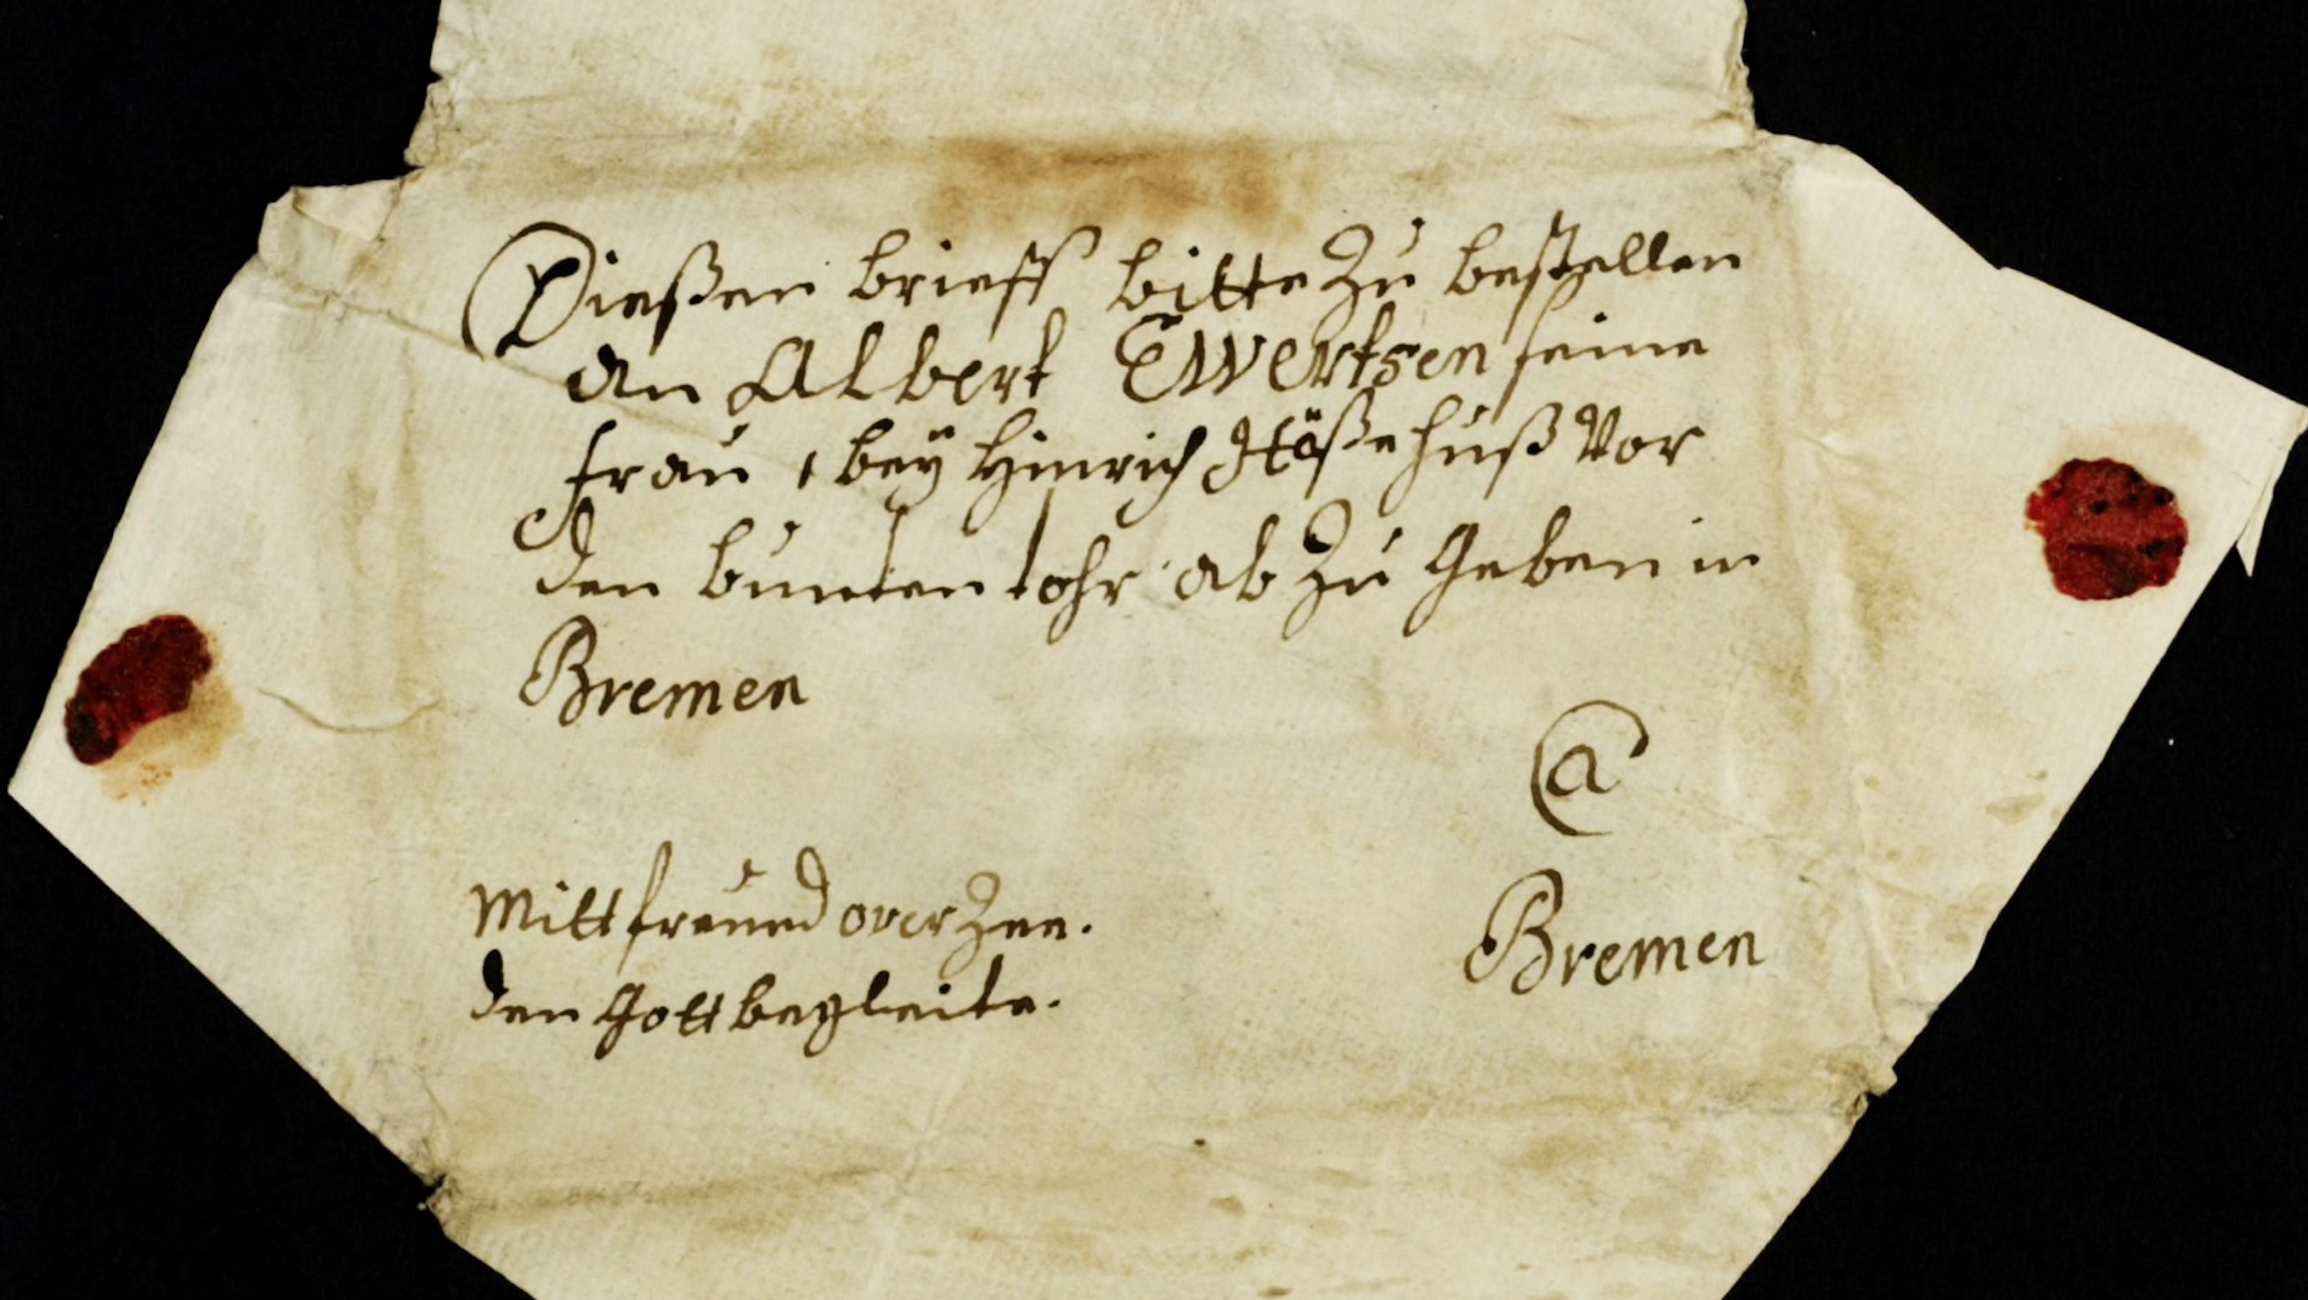 Dießen brieff bitte Zu bestellen
an Albert Ewertsen seine
frau, bey Hinrich Hößehuß Vor
den bunten tohr ab Zu Geben in
Bremen
@
Mitt freund over Zee.
den Gott begleite.
Bremen